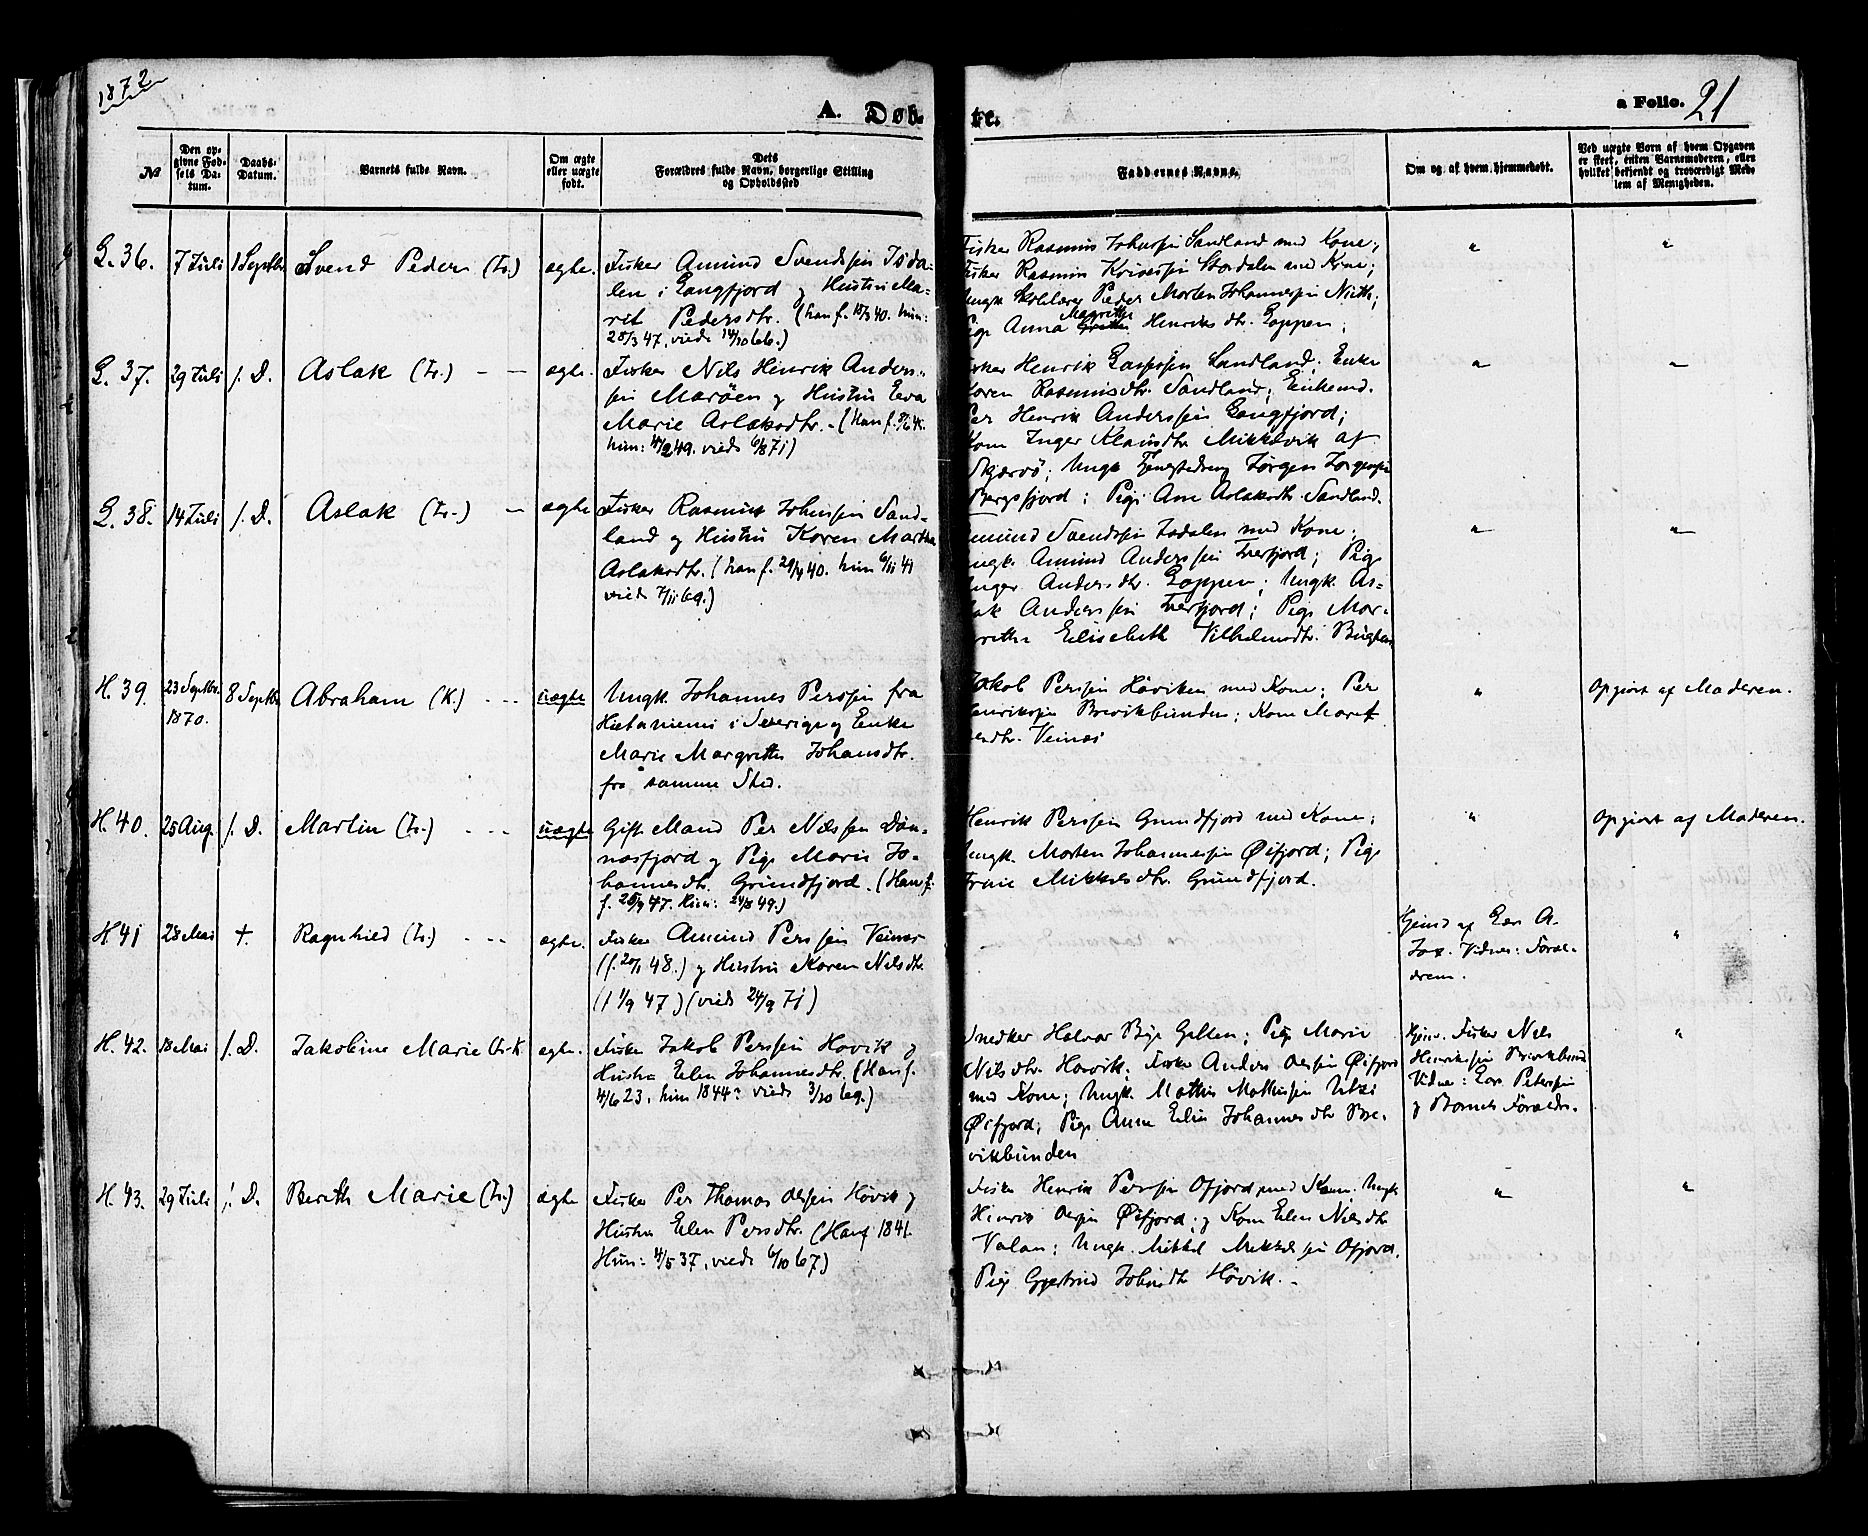 1872
A. Døb-
te.
a Folio. 21
No
Den op-
givne Fød-
sels Da-
tum.
Daabs-
Datum.
Barnets fulde Navn.
Om ægte
eller uægte
født.
Dets
Forældres fulde Navn, borgerlige Stilling
og Opholdssted
Faddernes Navne.
Om og af hvem hjemmedøbt.
Ved uægte Børn af hvem Opgaven
er skeet, enten Barnemoderen, eller
hvilket bekjendt og troværdigt Med-
lem af Menigheden.
L. 36. 7 Juli 1 Septbr Svend Peder (Lr.) ægte. Fisker Amund Svendssen Isda-
len i Langfjord og Hustru Ma-
rit Pedersdtr. (han f. 40. hun:
28/3 47, viede 14/10 66.)
Fisker Rasmus Johnssen Sandland med Kone;
Fisker Rasmus Stordalen med Kone;
Ungk. Skolelærer Peder Morten Johannessen
Pige Anna Magrethe Henriksdtr. Loppen;
" "
L. 37. 29 Juli s. D. Aslak (Lr.) - - ægte. Fisker Nils Henrik Anders-
sen Marøen og Hustru Eva
Marie Aslaksdtr. - (han f.
hun: 49. viede 6/8 71)
Fisker Henrik Sandland; Enke
Karen Rasmusdtr. Sandland; Enkemd.
Per Henrik Anderssen Langfjord;
Kone Inger Mikkelvik af
Skjervö; Ungk. Jørgen
Bergsfjord; Pige Ane Aslaksdtr. Sandland.
" "
L. 38. 14 Juli s. D. Aslak (Lr.) - ægte Fisker Rasmus Johnssen Sand-
land og Hustru Karen Martha
Aslaksdtr. (han f. 29/4 40. hun 6/11 41
viede 7/11 69.)
Amund Svendssen Isdalen med Kone;
Ungk. Amund Anderssen Tverfjord; Pige
Inger Andersdtr. Loppen; Ungk. As-
lak Anderssen Tverfjord; Pige Mar-
grethe Elisebeth Vilhelmsdtr.
" "
H. 39. 23 Septbr. 8 Septbr Abraham (K.) - - - uægte Ungk. Johannes Perssen fra
1870.
Hietaniemi i Sverige og Enke
Marie Margrethe Johansdtr.
fra samme Sted.
Jakob Perssen Høviken med Kone; Per
Henrikssen Brevikbunden; Kone Maret
Veines
" Opgivet af Moderen.
H. 40. 25 Aug. s. D. Martin (Lr.) - - - uægte Gift Mand Per Nilssen Døn-
nesfjord og Pige Marie Jo-
hannesdtr. Grundfjord. (Han f.
f. 47. Hun: 24/8 49.)
Henrik Perssen Grundfjord med Kone;
Ungk. Morten Johannessen Øifjord; Pige
Mikkelsdtr. Grundfjord.
" Opgivet af Moderen.
H 41 28 Mai +. Ragnhild (Lr.) - - - ægte. Fisker Amund Perssen Veines
(f. 20/1 48.) og Hustru Karen Nilsdtr.
(f 1/9 47) (viede 24/9 71)
- -
Hjemd. af Lars A.
Vidner: Foræl-
drene.
"
H. 42. 18 Mai s. D. Jakobine Marie (Lr. K ægte. Fisker Jakob Perssen Høvik og
Hustru Elen Johannesdtr. (Han f.
4/6 23, hun 1844: viede 3/10 69.)
Snedker Halvor Galten; Pige Marie
Nilsdtr. Høvik; Fisker Anders Olessen Øifjord
med Kone; Ungk. Mathis Mathissen Utsi
Øifjord; Pige Anne Elen Johannesdtr Bre-
vikbunden
Hjem. Fisker Nils
Henrikssen Brevikbund
Vidne: Lars Peterssen
og Barnets Forældre.
"
H. 43. 29 Juli s. D. Berith Marie (Lr.) ægte Fisker Per Thomas Olessen Høvik og
Hustru Elen Persdtr. (Han f 1841.
Hun: 4/5 37, viede 6/10 67)
Fisker Henrik Perssen Øfjord med Kone; Ungk
Henrik Olessen Øifjord; og Kone Elen Nilsdtr
Valan; Ungk. Mikkel Mikkelssen Øfjord.
Pige Gjertrud Johnsdtr Høvik. -
" "